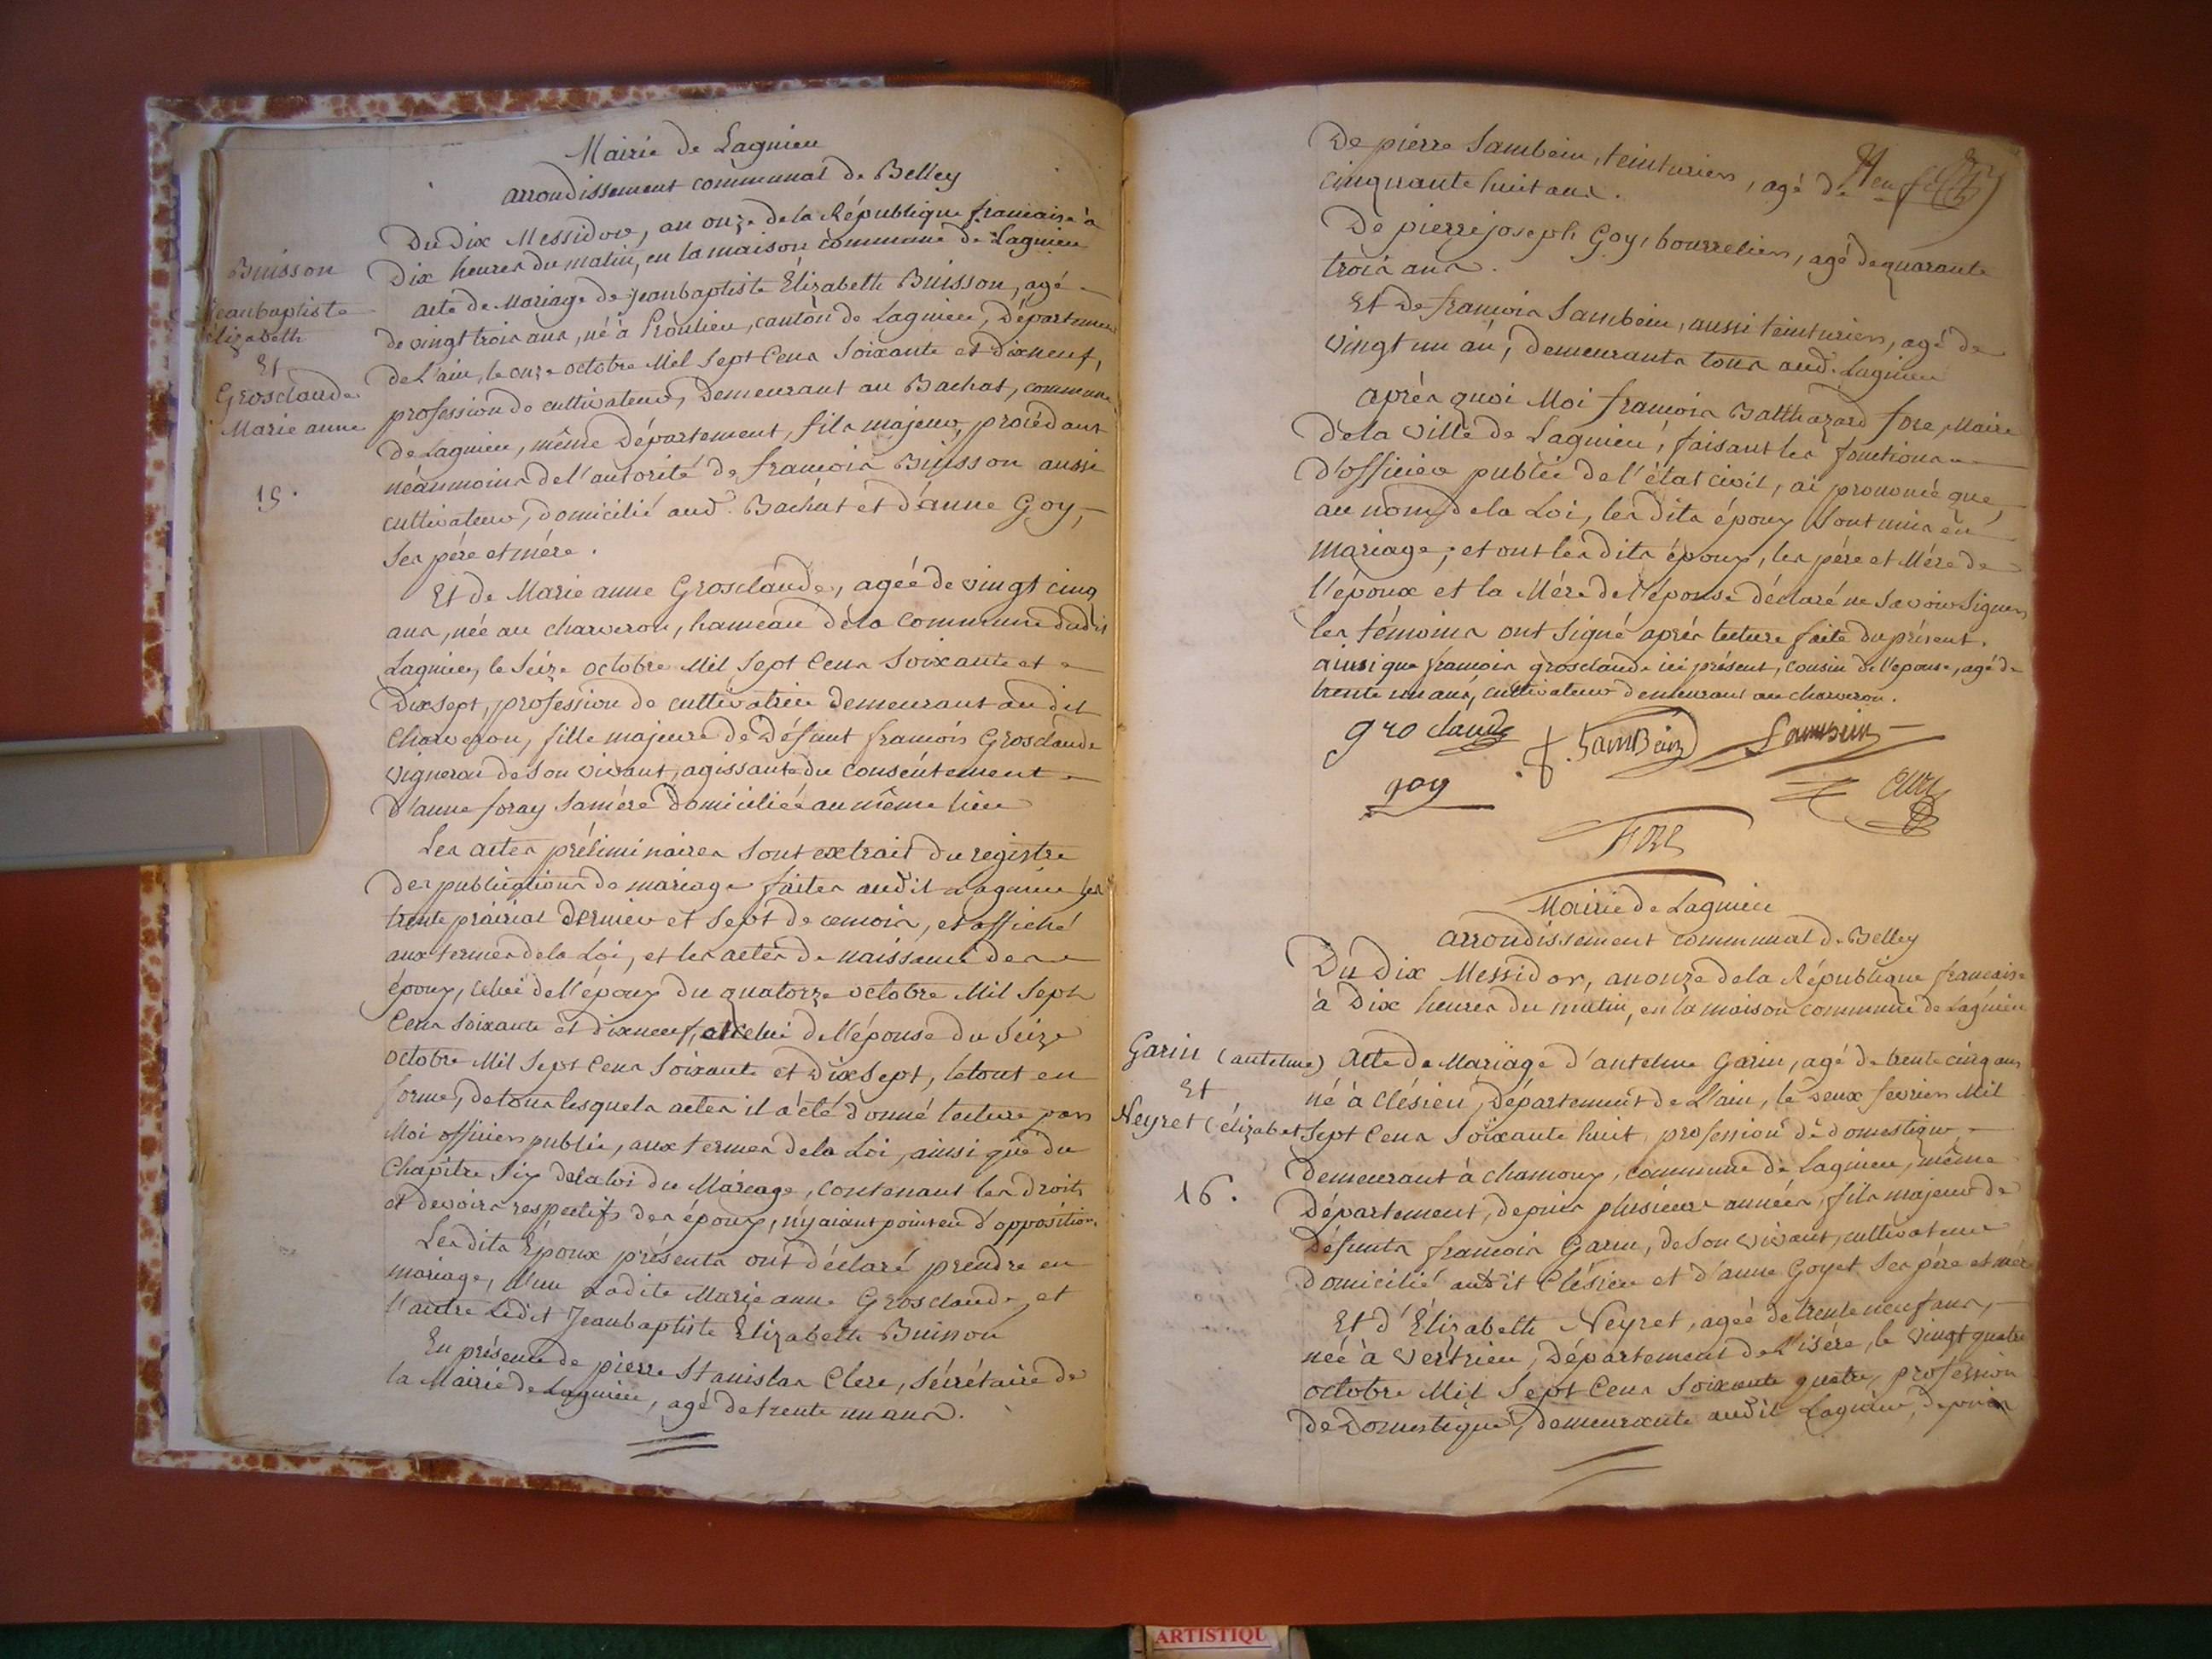 Mairie de Lagnieu
arrondissement communal de Belley
Du Dix Messidor, an onze de la République francaise à
Dix heures du matin, en la maison commune de Lagnieu
Buisson
Jeanbaptiste
élizabeth
Et
Grosclaude
Marie anne
15.
acte de Mariage de Jeanbaptiste Élizabeth Buisson, agé
de vingt trois ans, né à Proulieu, canton de Lagnieu, Département
de L'ain, le onze octobre Mil Sept Cens Soixante et dixneuf,
profession de cultivateur, Demeurant au Bachat, commune
de Lagnieu, même Département, fils majeur, procédant
néanmoins de l'autorité de francois Buisson aussi
cultivateur, domicilié aud. Bachat et d'anne Goy,
Ses pére et mére.
Et de Marie anne Grosclaude, agée de vingt cinq
ans, née au charveron, hameau de la Commune dudit
Lagnieu, le Seize octobre Mil Sept Cens Soixante et
Dixsept, profession de cultivatrice demeurant au dit
Charveron, fille majeure de Défunt francois Grosclaude
vigneron de Son vivant, agissante du consentement
d'anne foray Sa mére domiciliée au même lieu
Les actes préliminaires Sont extrait du registre
des publications de mariage faites audit Lagnieu les
trente prairial dernier et Sept de cemois, et affiché
aux termes de la Loi, et les actes de naissance des
époux, celui de l'époux du quatorze octobre Mil Sept
Cens Soixante et dixneuf, et celui de l'épouse du Seize
octobre Mil Sept Cens Soixante et Dix Sept, le tout en
forme, de tous lesquels actes il a été donné lecture par
Moi officier public, aux termes de la Loi, ainsi que du
Chapitre Six de la loi du Mariage, contenant les droits
et devoirs respectifs des époux, n'y aiant point eu d'opposition.
Les dits Époux présents ont déclaré prendre en
mariage, l'un Ladite Marie anne Grosclaude, et
l'autre Ledit Jeanbaptiste Elizabeth Buisson
En présence de pierre Stanislas Clerc, Sécrétaire de
la Mairie de Lagnieu, agé de trente un ans.
De pierre Sambein, teinturier, agé de
cinquante huit ans.
De pierre joseph Goy, bourrelier, agé de quarante
trois ans.
Et de francois Sambein, aussi teinturier, agé de
vingt un an, demeurants tous aud. Lagnieu
après quoi Moi francois Balthazard fore, Maire
de la ville de Lagnieu, faisant les fonctions
d'officier public de l'état civil, ai prononcé que,
au nom de la Loi, les dits époux Sont unis en
mariage; et ont les dits époux, les pére et Mére de
l'époux et la Mére de l'épouse déclaré ne Savoir Signer,
les témoins ont Signé après lecture faite du présent.
ainsi que francois grosclaude ici présent, cousin de l'épouse, agé de
trente un ans, cultivateur demeurant au charveron.
gro claude f. SamBein Sambein
goy Clerc
FORE
Mairie de Lagnieu
arrondissement communal de Belley
Du Dix Messidor, an onze de la République francaise
à Dix heures du matin, en la maison commune de Lagnieu
Garin (antelme)
Et
Neyret (élizabet
16.
Acte de Mariage d'antelme Garin, agé de trente cinq ans
né à Clésieu, Département de L'ain, le deux fevrier Mil
Sept Cens Soixante huit, profession de domestique
demeurant à chamoux, commune de Lagnieu, même
Département, depuis plusieurs années, fils majeur de
défunts francois Garin, de Son vivant, cultivateur
domicilié audit Clésieu et d'anne Goyet Ses pére et mére
Et d'Élizabeth Neyret, agée de trente neuf ans,
née à Vertrieu, Département de L'isére, le vingt quatre
octobre Mil Sept Cens Soixante quatre, profession
de Domestique, demeurante audit Lagnieu, depuis
ARTISTIQU